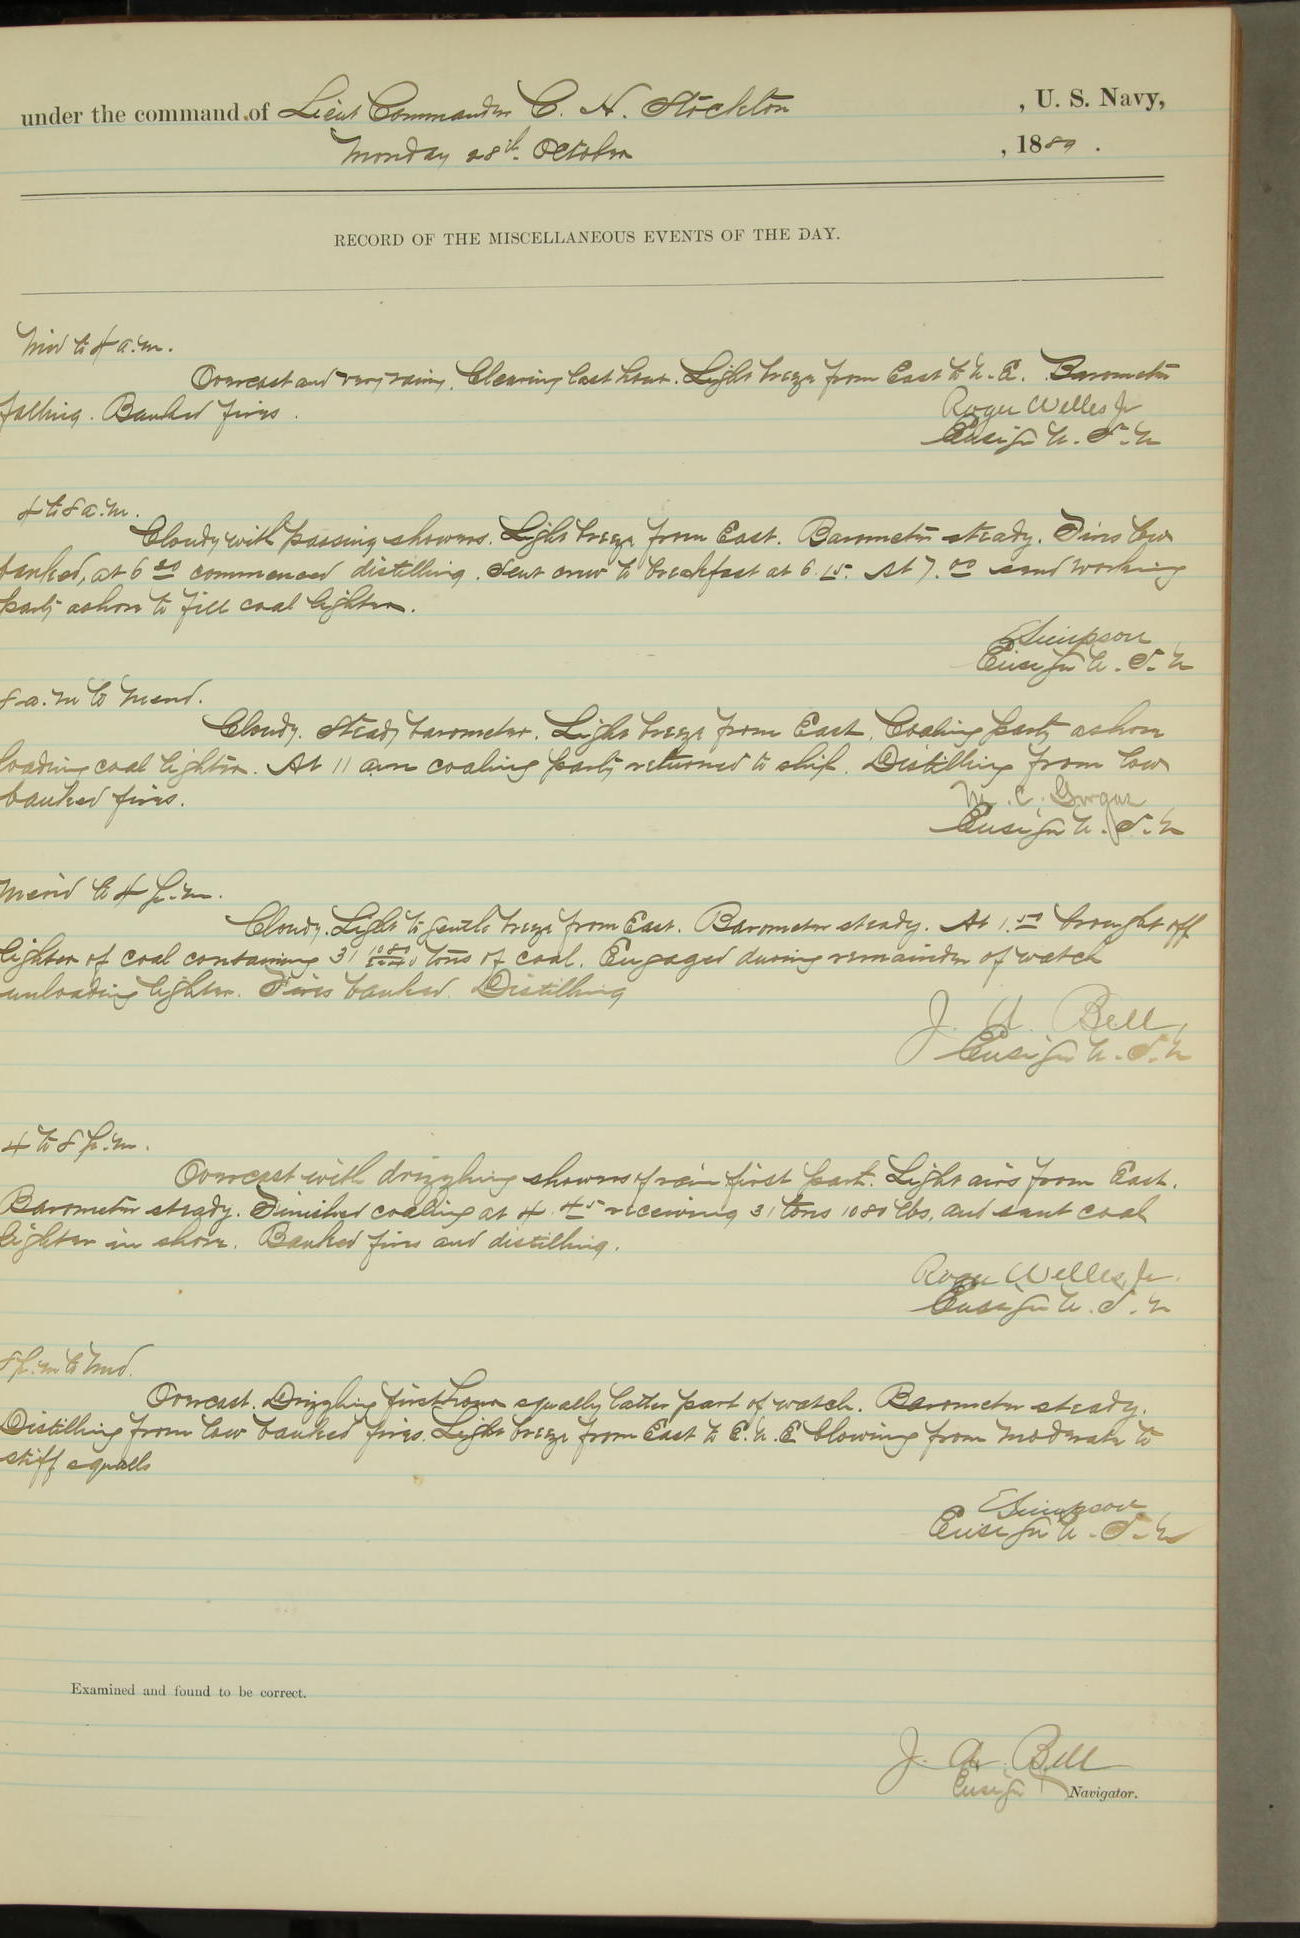 under the command of Lieut Commander C. H. Stockton , U. S. Navy,
Monday 28th October , 1889 .
RECORD OF THE MISCELLANEOUS EVENTS OF THE DAY.
Mid to 4 a.m.
Overcast and very rainy. Clearing last hour. Light breeze from East to N. E. Barometer
falling. Banked fires.
Roger Welles Jr
Ensign U. S. N
4 to 8 a.m.
Cloudy with passing showers. Light breeze from East. Barometer steady. Fires low
banked, at 6 commenced distilling. Sent crew to breakfast at 6.15. At 7.00 send working
party ashore to fill coal lighter.
E Simpson
Ensign U. S. N
8 a.m to Merid.
Cloudy. Steady barometer. Light breeze from East. Coaling party ashore
loading coal lighter. At 11 a.m coaling party returned to ship. Distilling from low
banked fires.
M. C. Gorgas
Ensign U. S. N
Merid to 4 p.m.
Cloudy. Light to gentle breeze from East. Barometer steady. At 1.50 brought off
lighter of coal containing 31 1080/2240 tons of coal. Engaged during remainder of watch
unloading lighter. Fires banked. Distilling
J. A. Bell,
Ensign U. S. N
4 to 8 p.m.
Overcast with drizzling showers of rain first part. Light airs from East.
Barometer steady. Finished coaling at 4.45 receiving 31 tons 1080 lbs. and sent coal
lighter in shore. Banked fires and distilling.
Roger Welles, Jr.
Ensign U. S. N
8 p.m to Mid.
Overcast. Drizzling first hour squally latter part of watch. Barometer steady.
Distilling from low banked fires. Light breeze from East to E. N. E blowing from moderate to
stiff squalls
E Simpson
Ensign U. S. N
Examined and found to be correct.
J. A. Bell
Ensign Navigator.